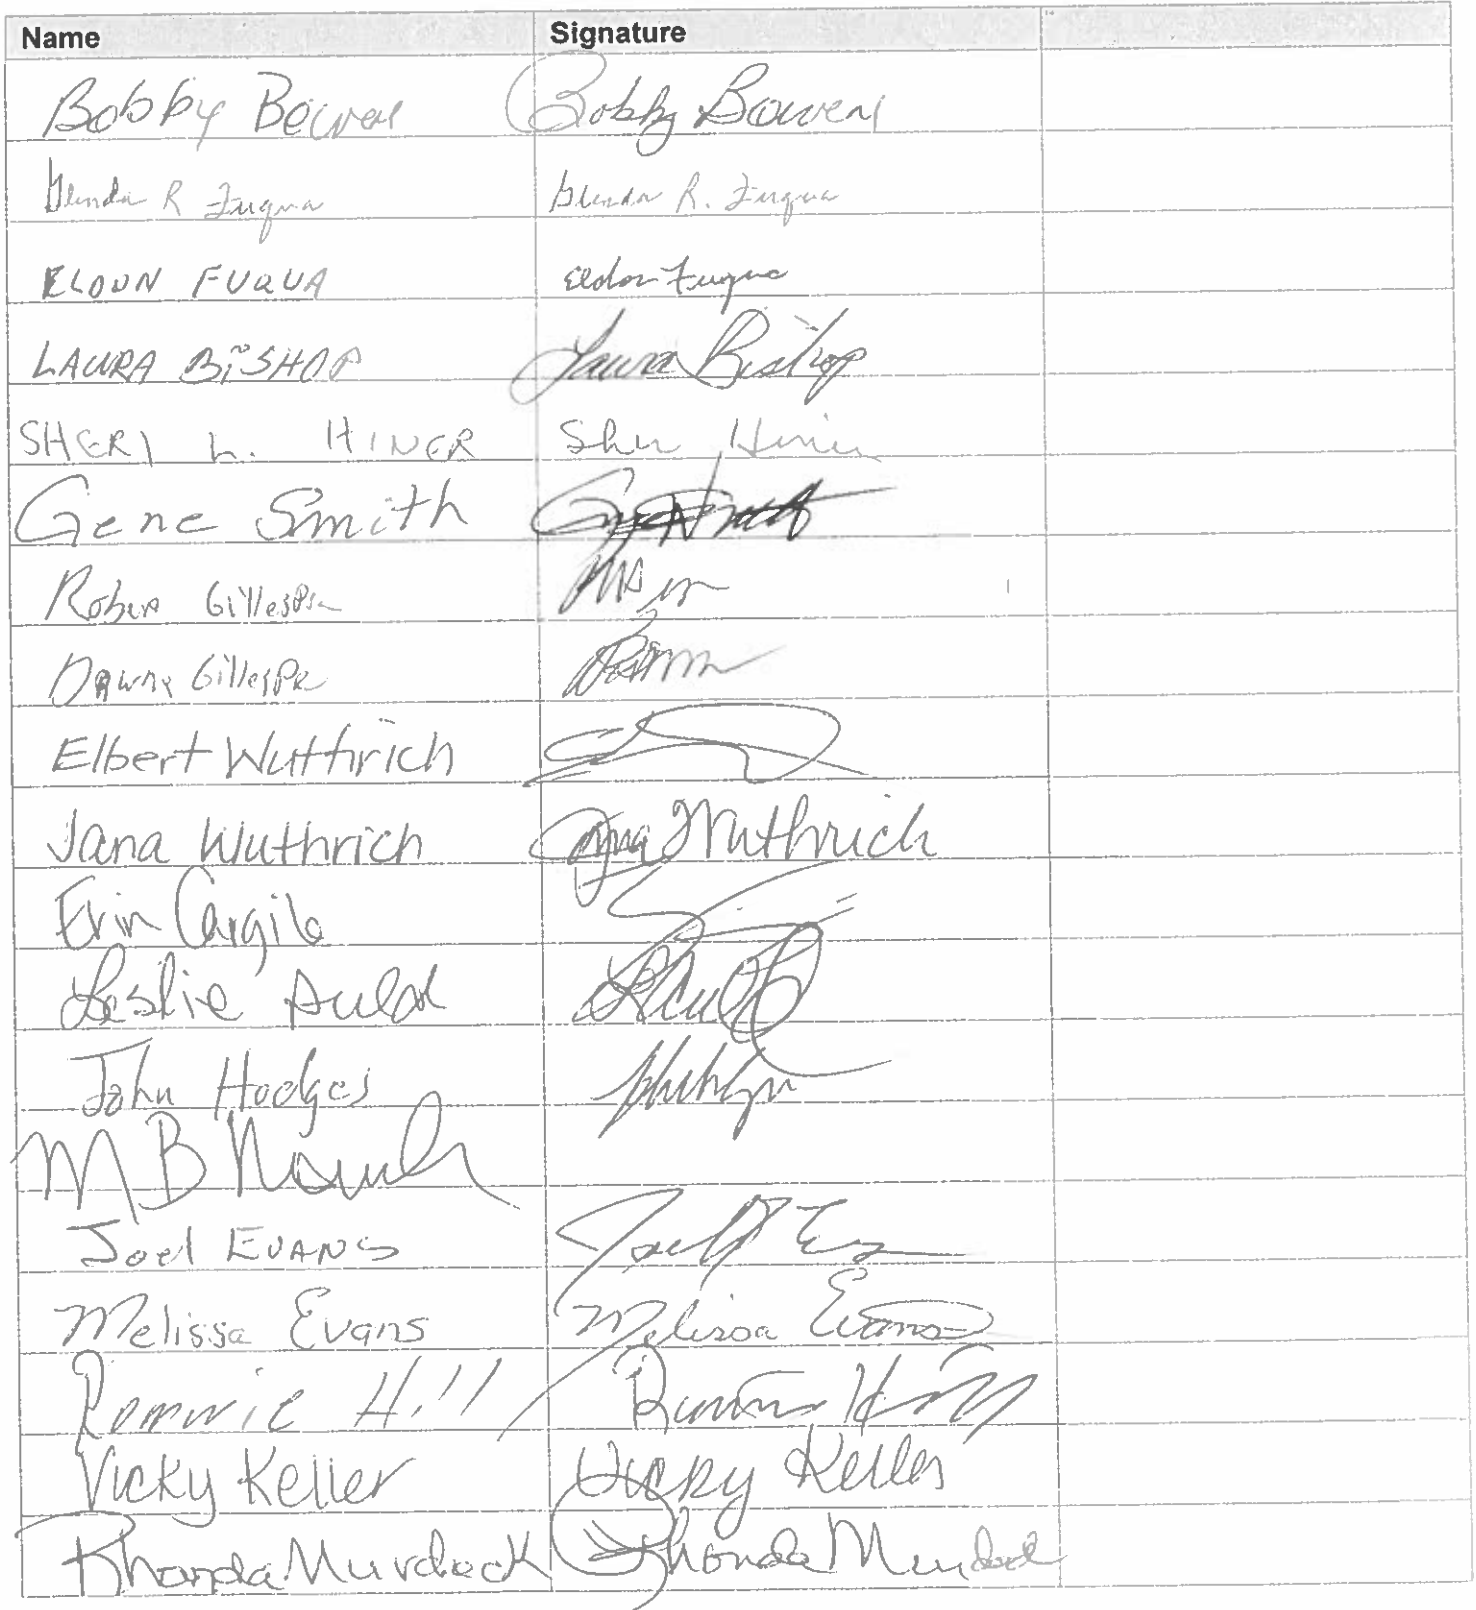 Name Signature
Bobby Bowens Bobby Bowens
Glenda R Fuqua Glenda R. Fuqua
ELDON FUQUA Eldon Fuqua
LAURA BISHOP Laura Bishop
SHERI L. HINER
Gene Smith
Gillespie
Gillespie
Elbert Wuthrich
Jana Wuthrich Jana Wuthrich
Erin Cargile
Leslie Auld
John Hodges
M B
Joel EVANS Joel
Melissa Evans Melissa Evans
Ronnie Hill Ronnie Hill
Vicky Keller Vicky Keller
Rhonda Murdock Rhonda Murdock